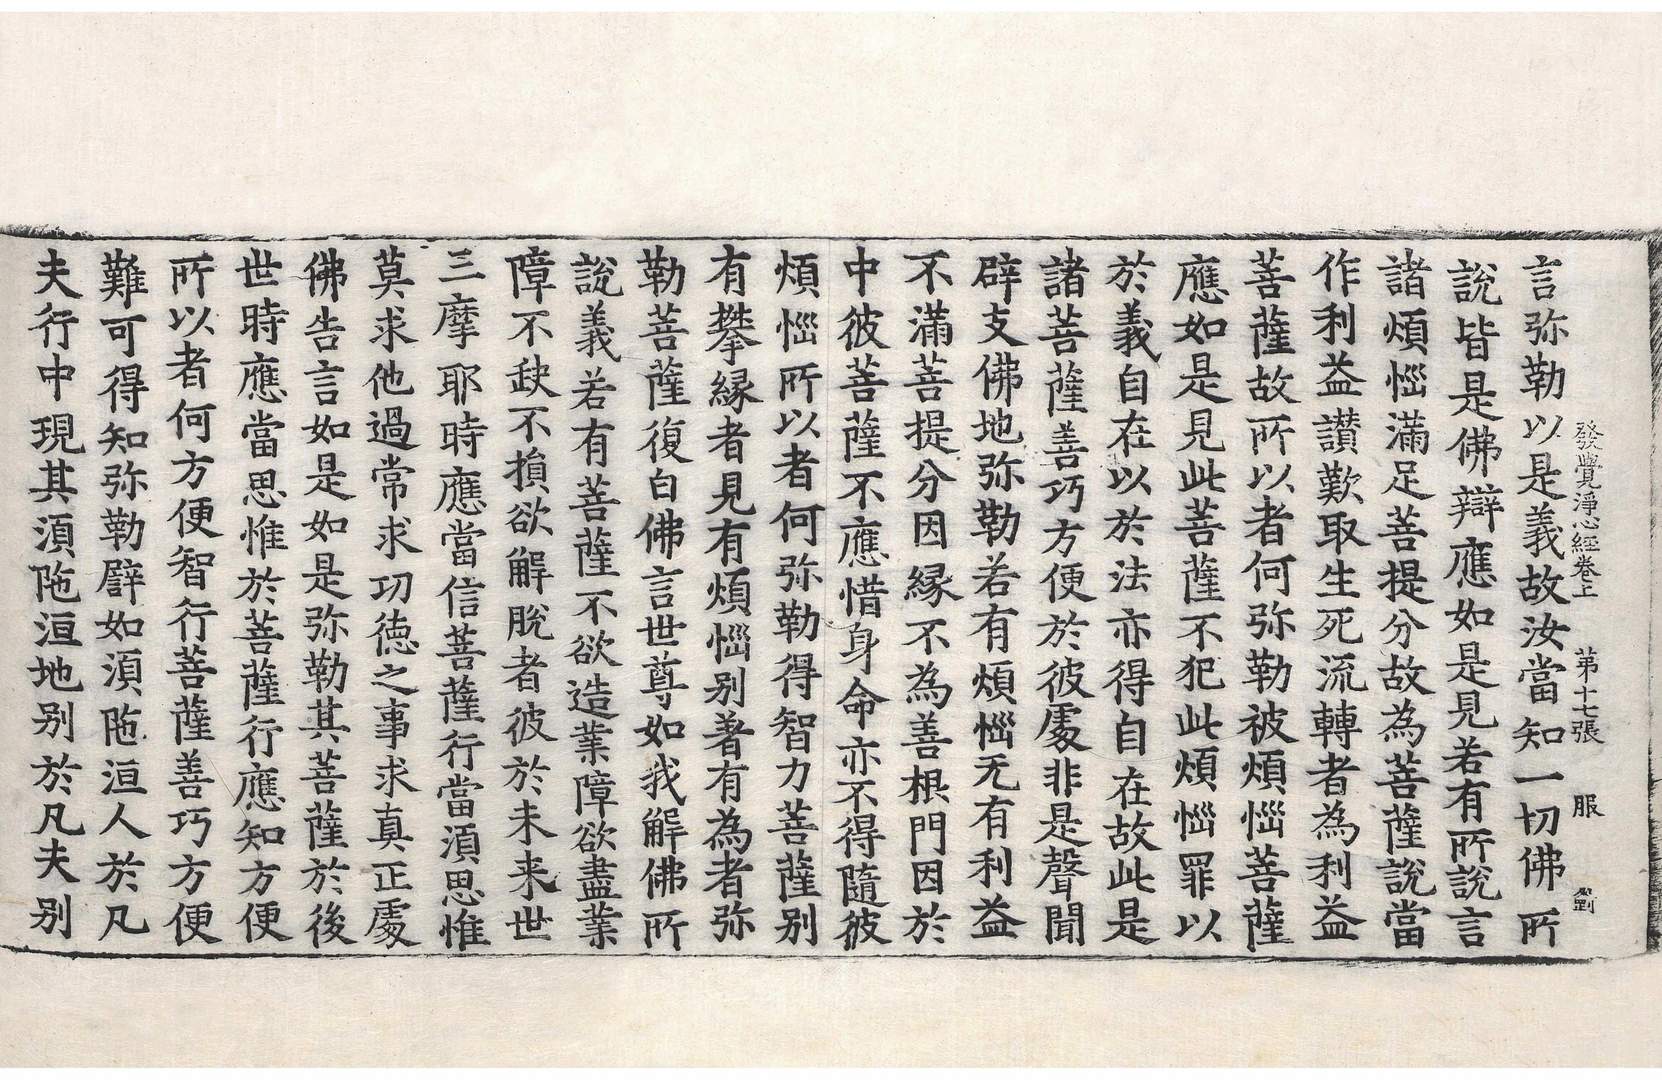 發覺淨心經卷上　第十七張　服　劉
言弥勒以是義故汝當知一切佛所
說皆是佛辯應如是見若有所說言
諸煩惱滿足菩提分故為菩薩說當
作利益讃歎取生死流轉者為利益
菩薩故所以者何弥勒被煩惱菩薩
應如是見此菩薩不犯此煩惱罪以
於義自在以於法亦得自在故此是
諸菩薩善巧方便於彼處非是聲聞
辟支佛地弥勒若有煩惱无有利益
不滿菩提分因緣不為善根門因於
中彼菩薩不應惜身命亦不得隨彼
煩惱所以者何弥勒得智力菩薩別
有攀緣者見有煩惱別著有為者弥
勒菩薩復白佛言世尊如我解佛所
說義若有菩薩不欲造業障欲盡業
障不缺不損欲解脫者彼於未來世
三摩耶時應當信菩薩行當須思惟
莫求他過常求㓛德之事求真正處
佛告言如是如是弥勒其菩薩於後
世時應當思惟於菩薩行應知方便
所以者何方便智行菩薩善巧方便
難可得知弥勒譬如須陁洹人於凡
夫行中現其須陁洹地別於凡夫別